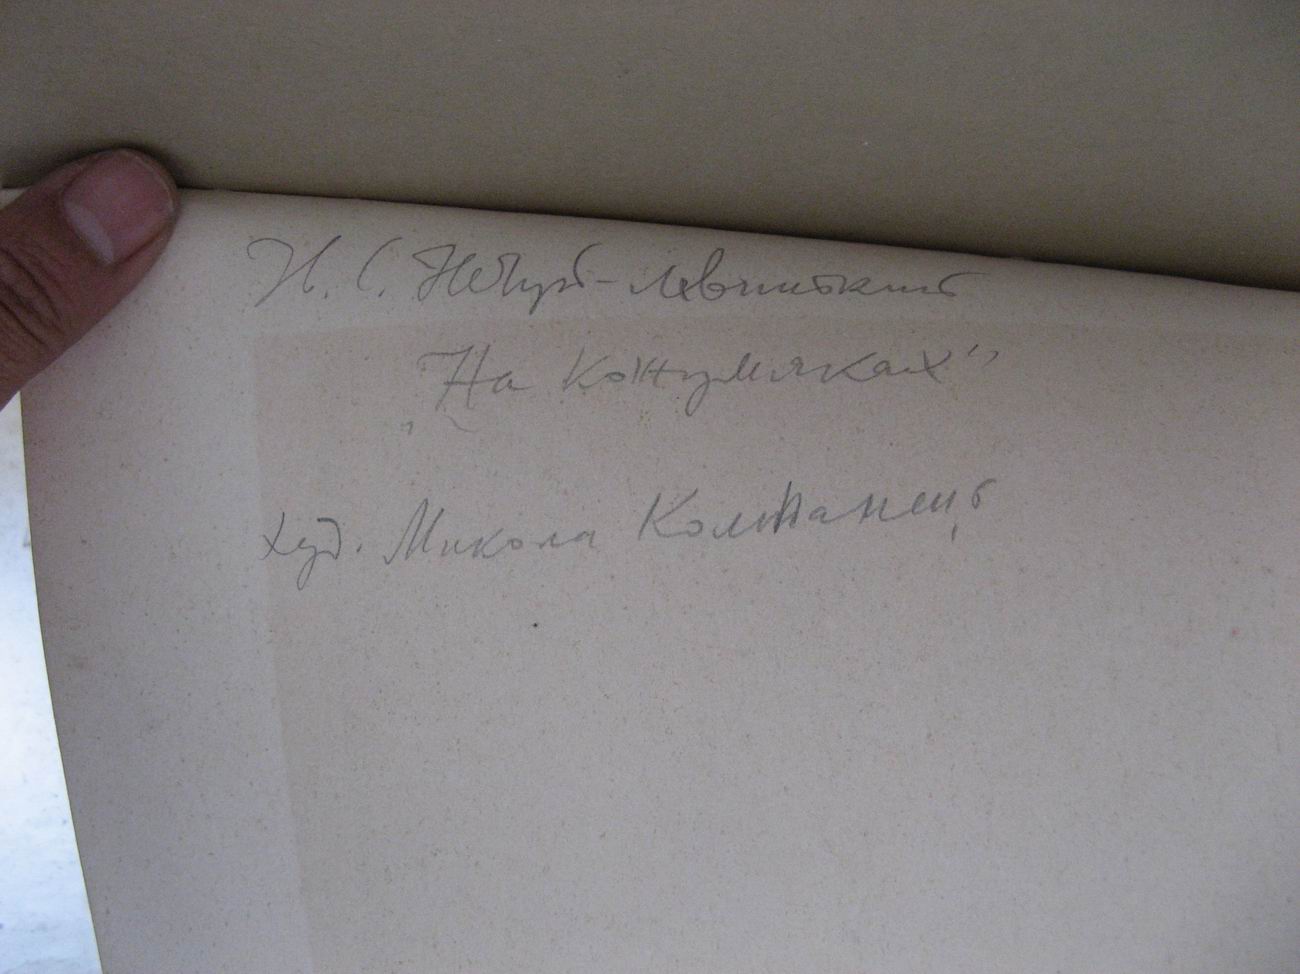 И. С. Нечуй-Левицький
„На Кожумяках"
худ. Микола Компанець